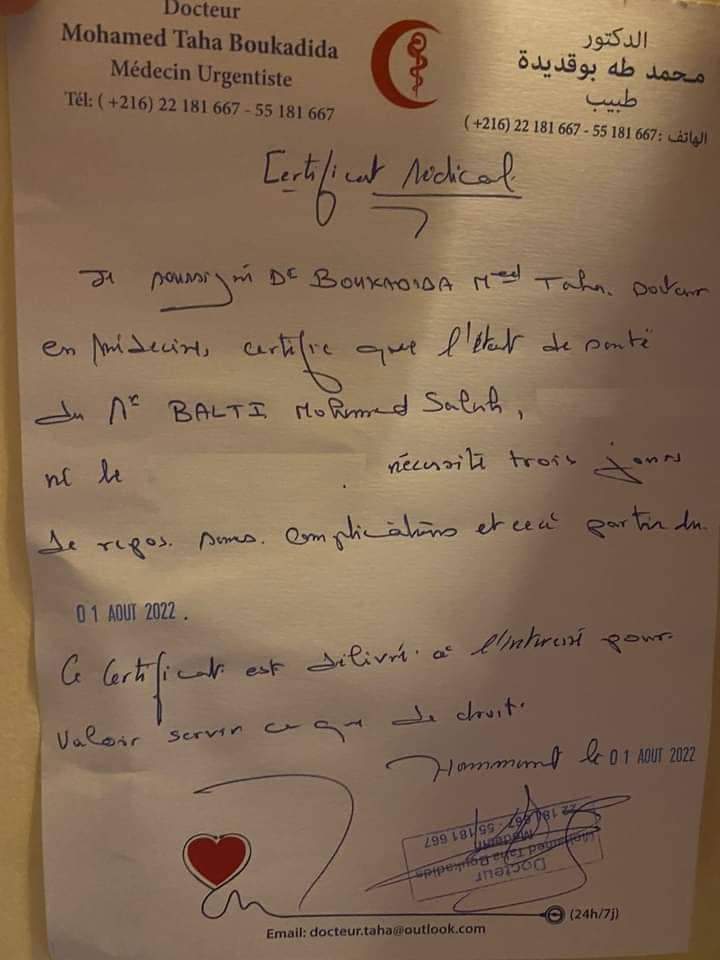 Docteur
Mohamed Taha Boukadida
Médecin Urgentiste
Tél: ( +216) 22 181 667 - 55 181 667
الدكتور
محمد طه بوقديدة
طبيب
الهاتف: ( +216) 22 181 667 - 55 181 667
Certificat Médical
Je soussigné Dr BOUKADIDA Med Taha. Docteur
en Médecine, certifie que l'état de santé
du Mr BALTI Mohamed Salah,
né le nécessite trois jours
de repos. sans. complications et ceci partir du.
01 AOUT 2022.
Ce Certificat est délivré à l'intéressé pour.
Valoir servir ce que de droit.
le 01 AOUT 2022
Docteur
Mohamed Taha Boukadida
Médecin
22 181 667 - 55 181 667
(24h/7j)
Email: docteur.taha@outlook.com